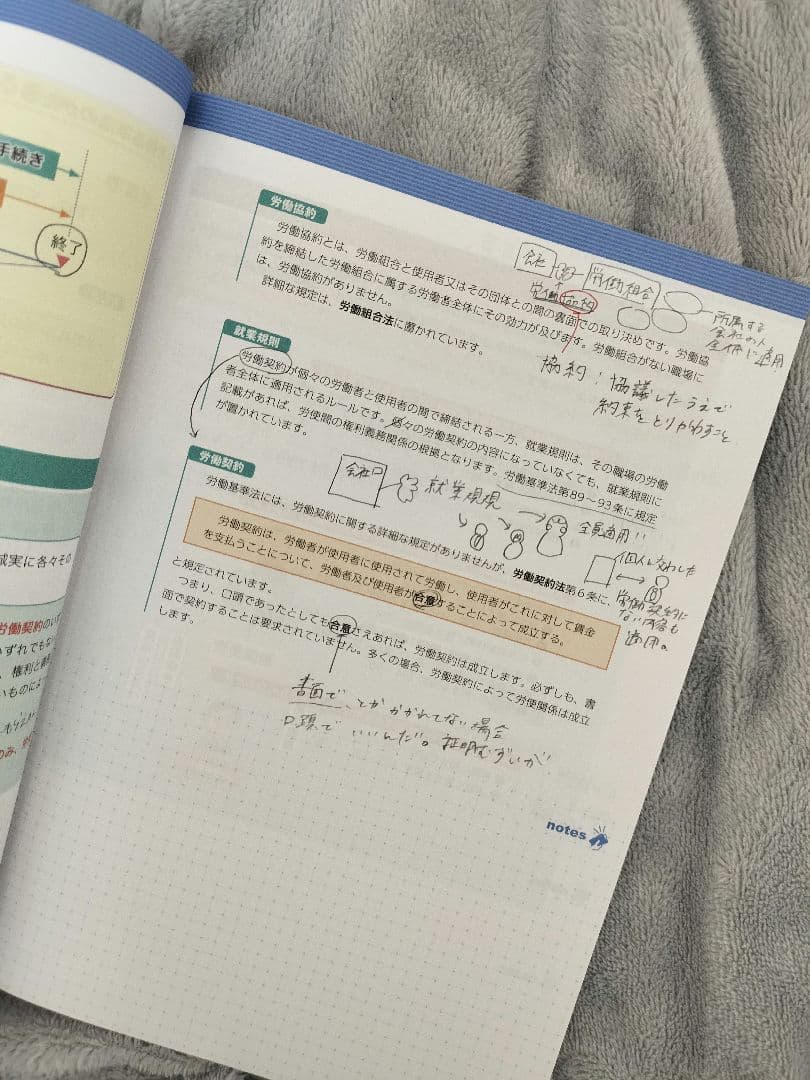 手続き
終了
誠実に各々その
労働契約のい
いずれでもな
権利と義
いものによ
のみ、
労働協約
労働協約とは、労働組合と使用者又はその団体との間の書面での取り決めです。労働協
約を締結した労働組合に属する労働者全体にその効力が及びます。労働組合がない職場に
は、労働協約がありません。
詳細な規定は、労働組合法に置かれています。
会社
労働組合
労働協約
所属する
会社の人
全体に適用
協約：協議したうえで
約束をとりかわすこと
就業規則
労働契約が個々の労働者と使用者の間で締結される一方、就業規則は、その職場の労働
者全体に適用されるルールです。個々の労働契約の内容になっていなくても、就業規則に
記載があれば、労使間の権利義務関係の根拠となります。労働基準法第89～93条に規定
が置かれています。
会社
就業規規
全員適用!!
個人と交わした
労働契約に
ない内容も
適用。
労働契約
労働基準法には、労働契約に関する詳細な規定がありませんが、労働契約法第6条に、
労働契約は、労働者が使用者に使用されて労働し、使用者がこれに対して賃金
を支払うことについて、労働者及び使用者が合意することによって成立する。
と規定されています。
つまり、口頭であったとしても合意さえあれば、労働契約は成立します。必ずしも、書
面で契約することは要求されていません。多くの場合、労働契約によって労使関係は成立
します。
書面で、とかかかれてない場合
口頭でいいんだ。証明むずいが
notes